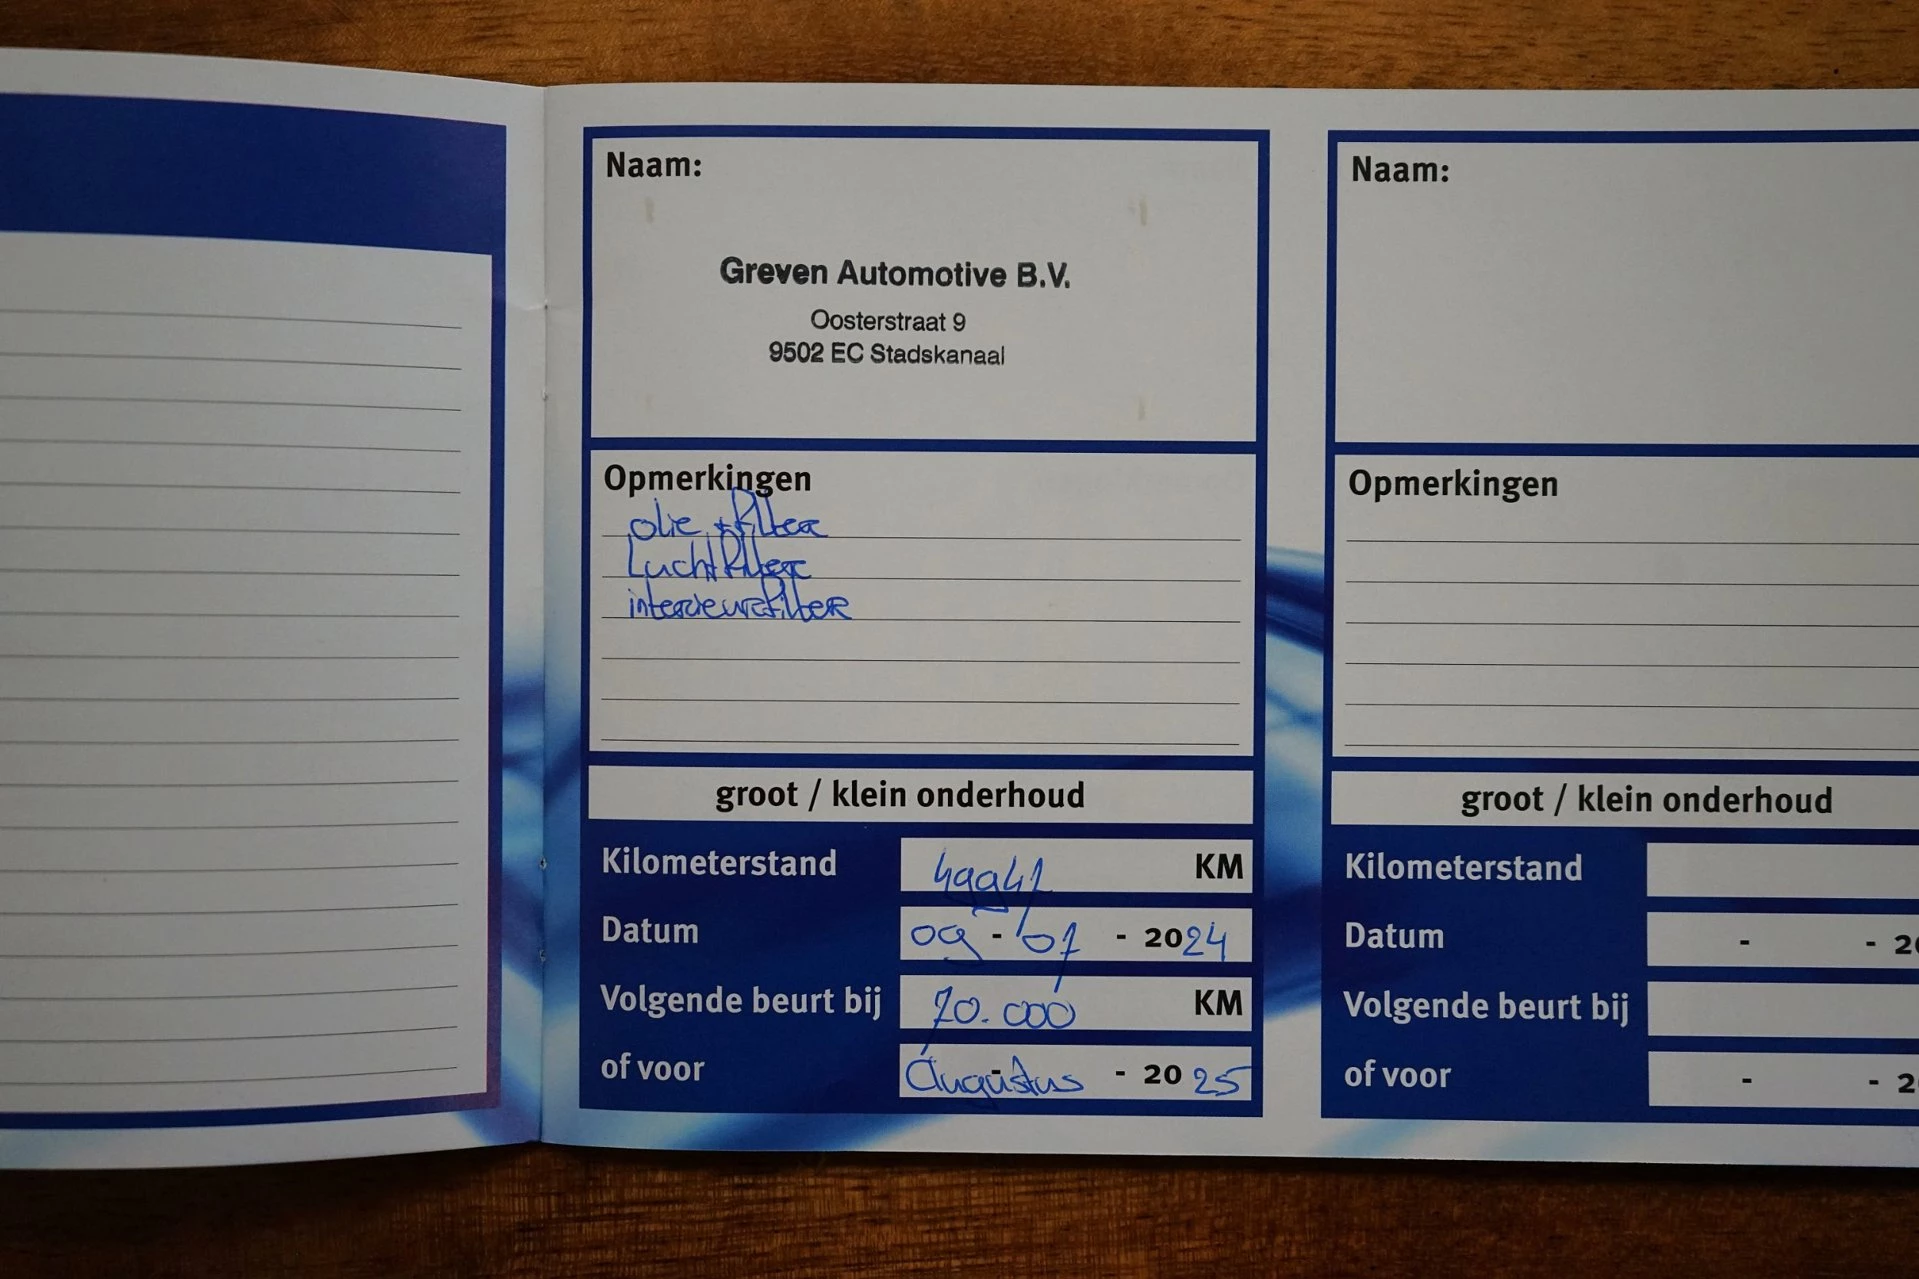 Naam:
Greven Automotive B.V.
Oosterstraat 9
9502 EC Stadskanaal
Opmerkingen
olie + filter
Luchtfilter
interieurfilter
groot / klein onderhoud
Kilometerstand 49941 KM
Datum 09 - 07 - 2024
Volgende beurt bij 70.000 KM
of voor Augustus - 20 25
Naam:
Opmerkingen
groot / klein onderhoud
Kilometerstand
Datum - - 20
Volgende beurt bij
of voor - - 2